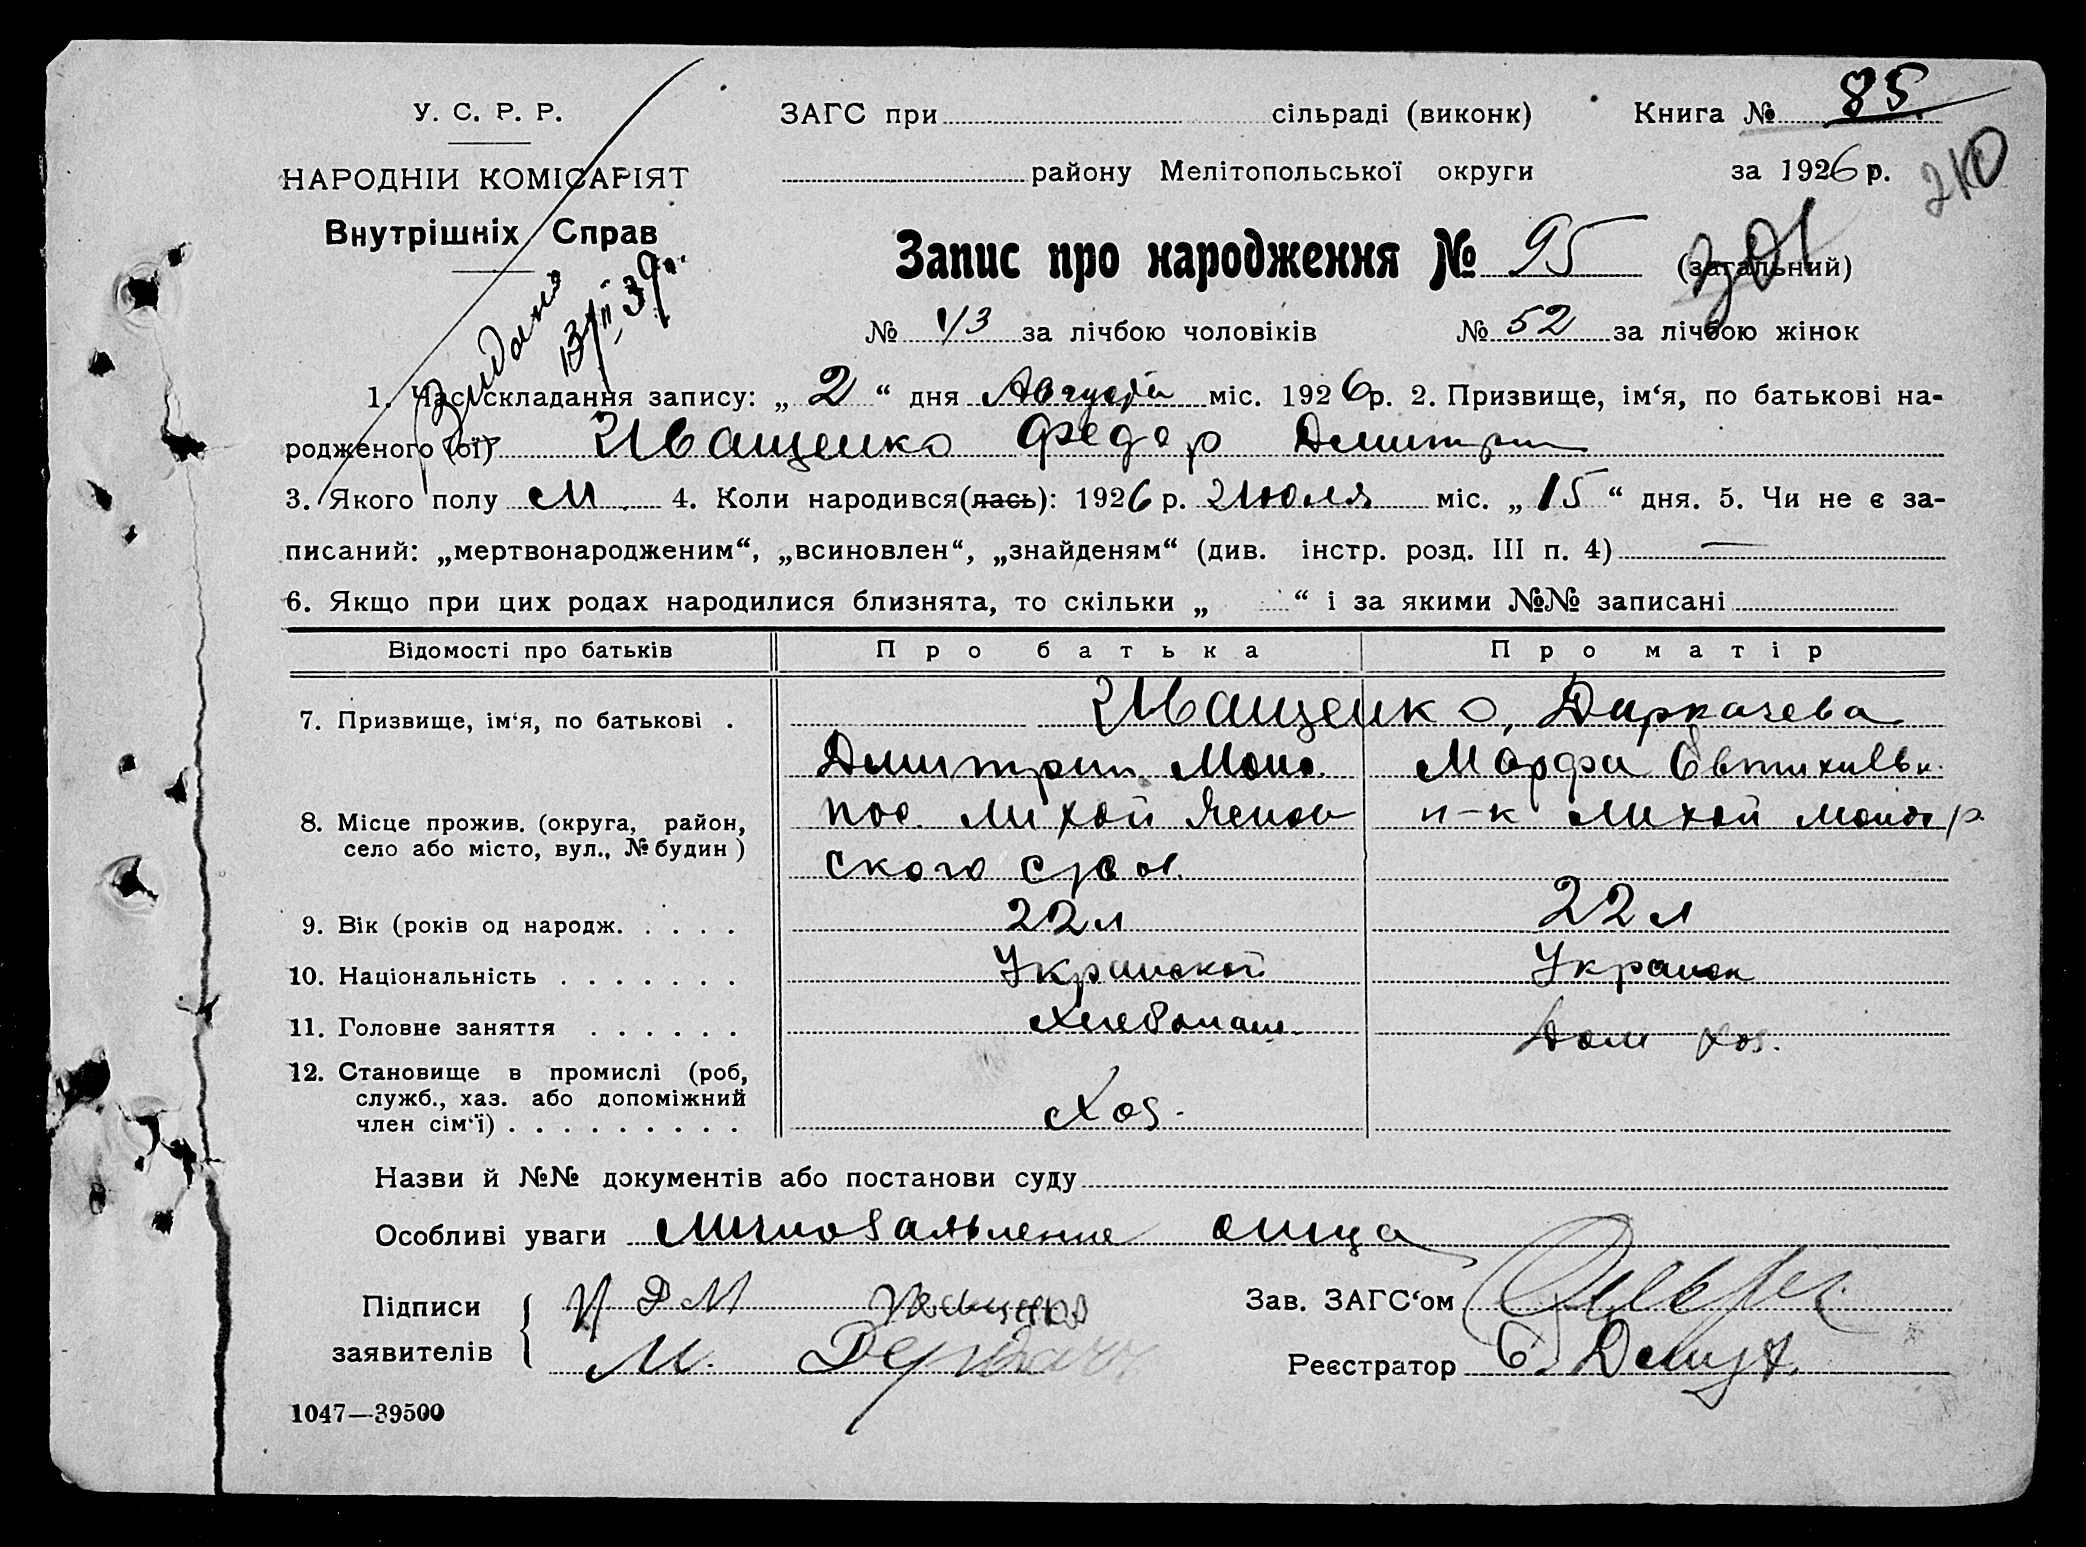 У. С. Р. Р. ЗАГС при сільраді (виконк) Книга № 85
НАРОДНІИ КОМІСАРІЯТ району Мелітопольської округи за 1926 р. 210
Внутрішніх Справ
Запис про народження № 95 (загальний) 301
Видано 13/II 39 г.
№ 43 за лічбою чоловіків № 52 за лічбою жінок
1. Час складання запису: „ 2 “ дня Августа міс. 1926 р. 2. Призвище, ім‘я, по батькові на-
родженого (ої) Иващенко Федор Дмитри
3. Якого полу М 4. Коли народився(лась): 1926 р. Июля міс. „ 15 “ дня. 5. Чи не є за-
писаний: „мертвонародженим“, „всиновлен“, „знайденям“ (див. інстр. розд. III п. 4) —
6. Якщо при цих родах народилися близнята, то скільки „ “ і за якими №№ записані
Відомості про батьків Про батька Про матір
7. Призвище, ім‘я, по батькові . Иващенко, Диркачева
Дмитрий Марфа
8. Місце прожив. (округа, район, пос. п-к
село або місто, вул., № будин) ского
9. Вік (років од народж. . . . . 22 л 22 л
10. Національність . . . . . . . Украинской Украин
11. Головне заняття . . . . . . Хлебопаш. Дом хоз.
12. Становище в промислі (роб,
служб., хаз. або допоміжний Хоз.
член сім‘ї) . . . . . . . . .
Назви й №№ документів або постанови суду
Особливі уваги Лично заявление отца
Підписи Д М Иващенко Зав. ЗАГС‘ом
заявителів М. Реєстратор
1047—39500